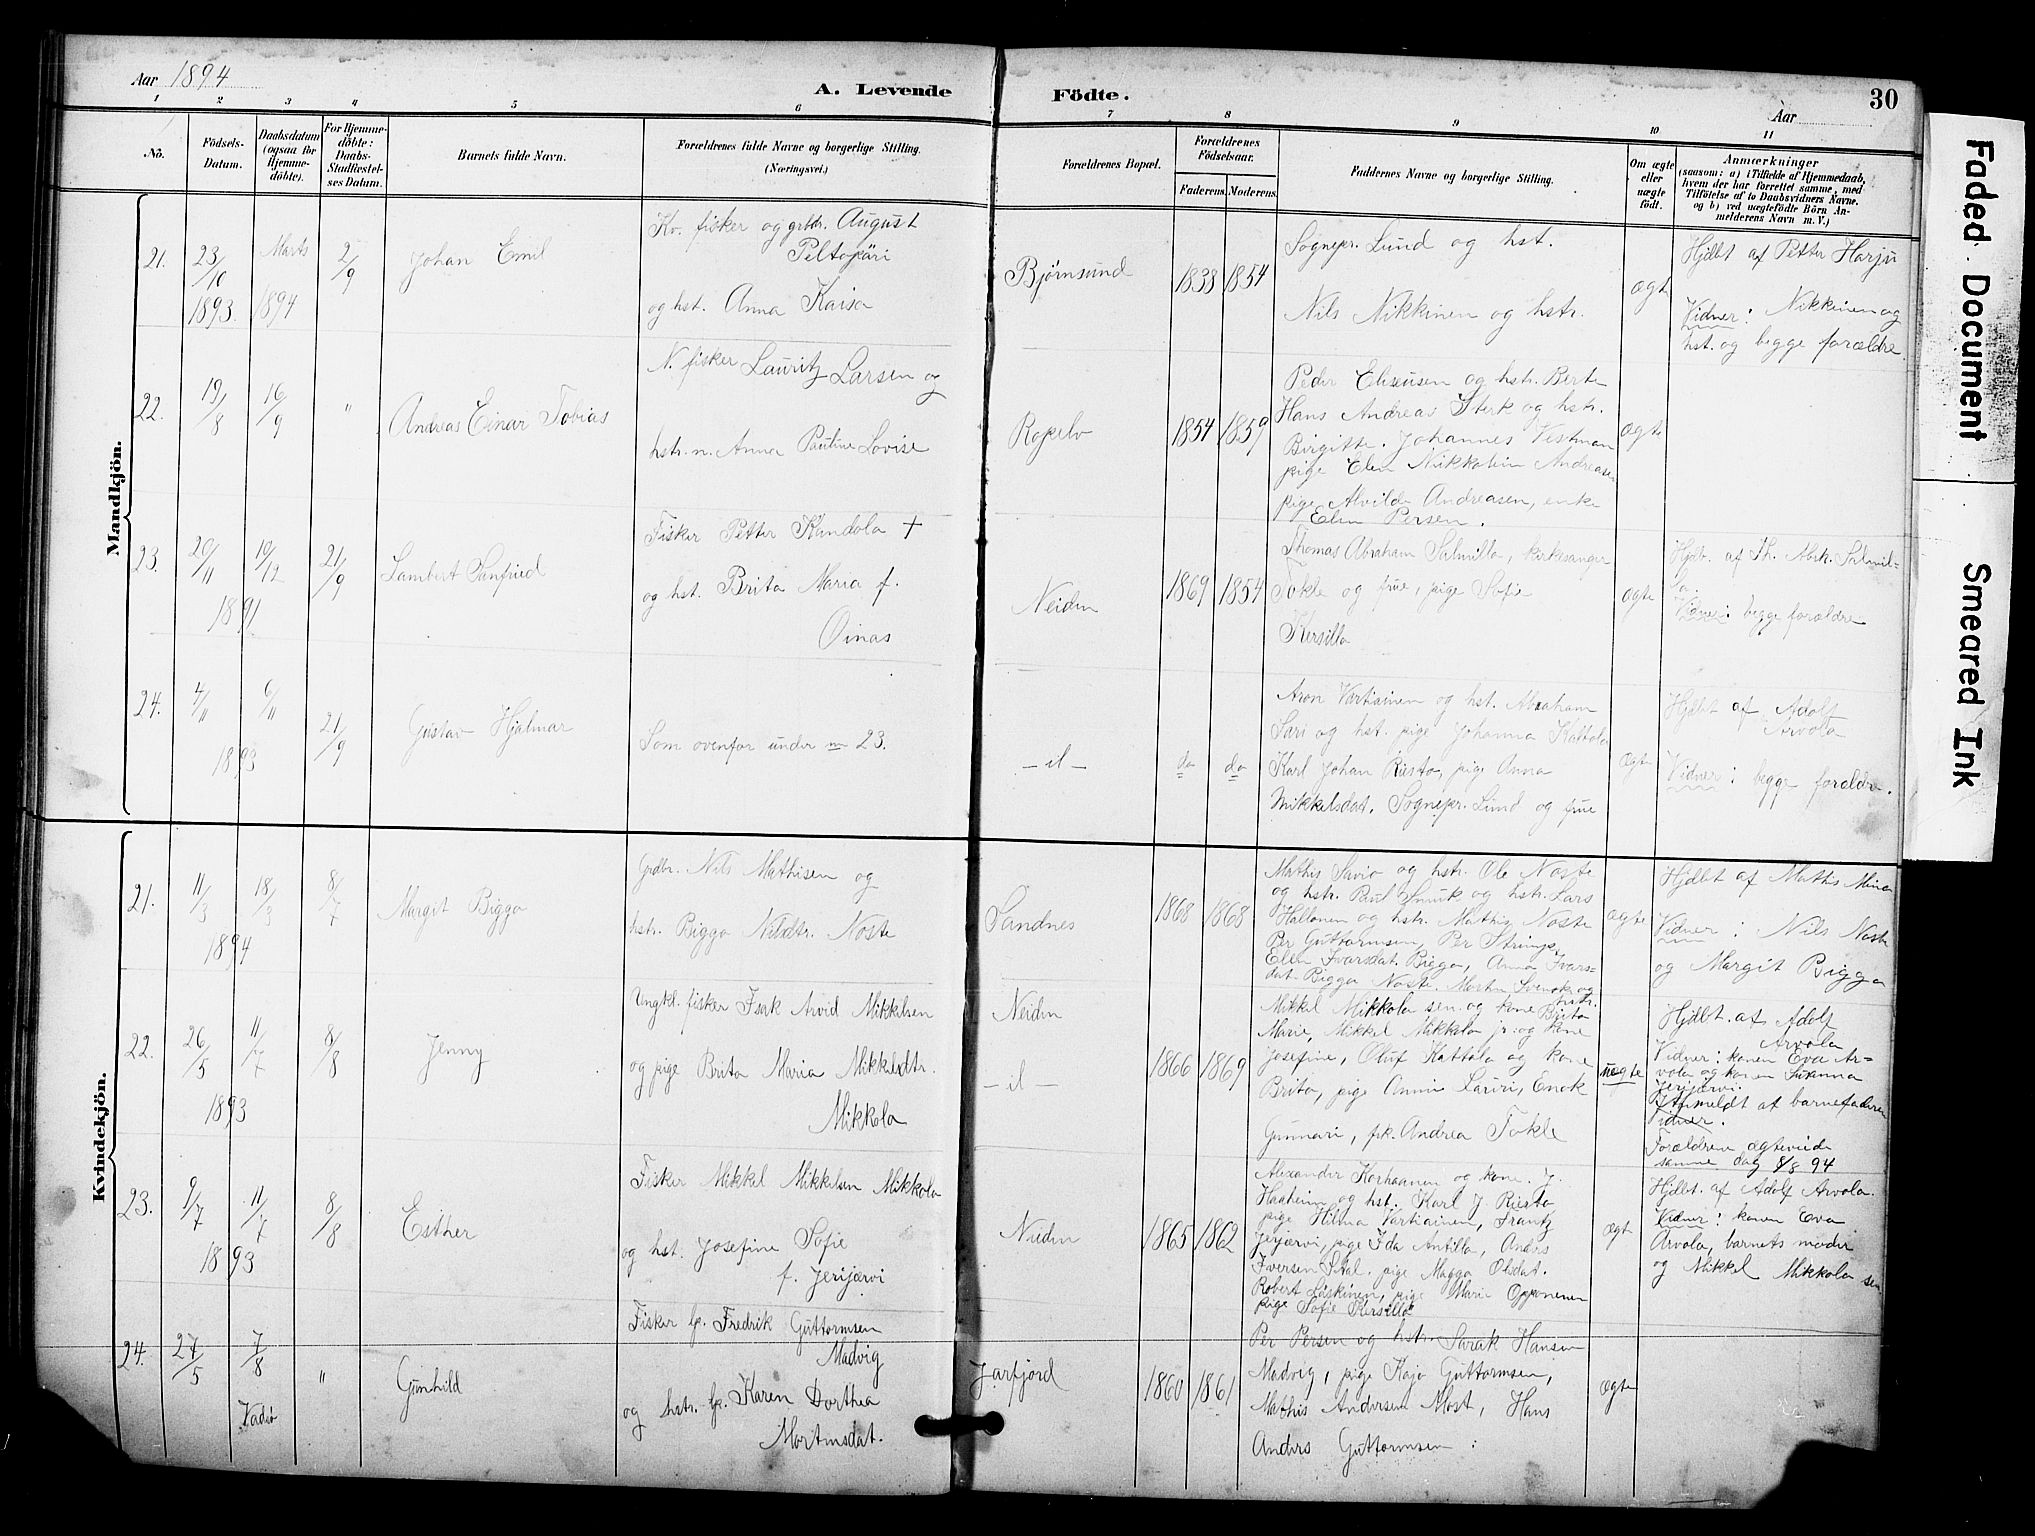 Aar 1894
A. Levende Födte.
Aar
30
1 2 3 4 5 6 7 8 9 10 11
No.
Födsels-Datum.
Daabsdatum (ogsaa for Hjemme-döbte).
For Hjemme-döbte: Daabs-Stadfæstel-ses Datum.
Barnets fulde Navn.
Forældrenes fulde Navne og borgerlige Stilling. (Næringsvei.)
Forældrenes Bopæl.
Forældrenes Födselsaar.
Faderens. Moderens.
Faddernes Navne og borgerlige Stilling.
Om ægte eller uægte födt.
Anmærkninger
(saasom: a) i Tilfælde af Hjemmedaab,
hvem der har forrettet samme, med
Tilföielse af to Daabsvidners Navne.
og b) ved uægtefödte Börn An-
melderens Navn m. V.)
Mandkjön.
21. 23/10 1893. Marts 1894 2/9 Johan Emil
Kv. fisker og grbr. August
Peltopäri
og hst. Anna Kaisa
Bjørnsund 1838 1854
Sognepr. Lund og hst.
Nils Nikkinen og hstr.
ægt
Hjdbt af Petter Harju
Vidner: Nikkinen og
hst. og begge forældre
22. 19/8 16/9 " Andreas Einar Tobias
N. fisker Lauritz Larsen og
hstr. n. Anna Pauline Lovise
Ropelv 1854 1859
Peder Eliseusen og hstr. Berte
Hans Andreas Sterk og hstr.
Birgitte. Johannes Vestman
pige Elen Nikkolein Andreasen
pige Alvilde Andreasen, enke
Elen Persen.
ægte
23. 20/11 1891 10/12 21/9 Lambert Sanfried
Fisker Petter Kandola †
og hst. Brita Maria f.
Oinas
Neiden 1869 1854
Thomas Abraham Salmilla, kirkesanger
Tokle og frue, pige Sofie
Kersilla
ægte
Hjdb. af Th. Abrh. Salmil-
la.
Vidner: begge forældre
24. 4/11 1893 6/11 21/9 Gustav Hjalmar
Som ovenfor under no 23.
- il - do do
Aron Vartiainen og hst. Abraham
Sari og hst. pige Johanna Kaltola
Karl Johan Riesto, pige Anna
Mikkelsdat. Sognepr. Lund og frue
Ægte
Hjdbt af Adolf
Arvola
Vidner: begge forældre.
Kvindekjön.
21. 11/3 1894 18/3 8/7 Margit Bigga
Grdbr. Nils Mathisen og
hstr. Bigga Nilsdtr. Noste
Sandnes 1868 1868
Mathis Savio og hstr. Ole Noste
og hstr. Paul Smuk og hstr. Lars
Hallonen og hstr. Mathis Noste
Per Guttormsen, Per Strimp,
Elen Ivarsdat. Bigga, Anna Ivars-
dat. Bigga Noste. Morten Svensk og
hstr.
ægte
Hjdbt af Mathis Mina
Vidner: Nils Noste
og Margit Bigga
22. 26/5 1893 11/7 8/8 Jenny
Ungkl. fisker Isak Arvid Mikkelsen
og pige Brita Maria Mikkelsdtr.
Mikkola
Neiden
- il - 1866 1869
Mikkel Mikkola sen. og kone Brita
Marie, Mikkel Mikkola jr. og kone
Josefine, Oluf Kaltola og kone
Brita, pige Anni Lauri, Enok
Gunnari, frk. Andrea Tokle
uægte
Hjdbt. af Adolf
Arvola
Vidner: konen Eva Ar-
vola og konen Susanna
Jerijærvi.
Anmeldt af barnefaderen
Vidner.
Forældrene ægteviede
samme dag 8/8 94
23. 9/7 1893 11/7 8/8 Esther
Fisker Mikkel Mikkelsen Mikkola
og hst. Josefine Sofie
f. Jerijærvi
Neiden 1865 1862
Alexander Korhaanen og kone. J.
Haaheim og hst. Karl J. Riesto
pige Hilma Vartiainen, Frantz
Jerjærvi, pige Ida Antilla, Anders
Iversen Stal. pige Magga Olsdat.
Robert Laskinen, pige Marie Opponenen
pige Sofie Kersilla
ægt
Hjdbt. af Adolf Arvola.
Vidner: konen Eva
Arvola, barnets moder
og Mikkel Mikkola sen
24. 27/5 7/8 Vadsø " Gunhild
Fisker lp. Fredrik Guttormsen
Madvig
og hstr. lp. Karen Dorthea
Mortensdat.
Jarfjord 1860 1861
Per Persen og hstr. Sarak Hansen
Madvig, pige Kaja Guttormsen,
Mathis Andersen Most, Hans
Anders Guttormsen.
Ægte
Faded Document
Smeared Ink